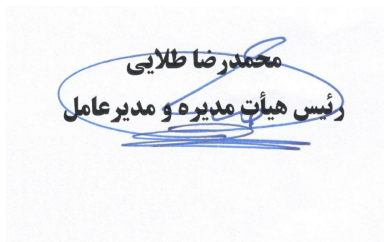 محمدرضا طلایی
رئیس هیأت مدیره و مدیرعامل